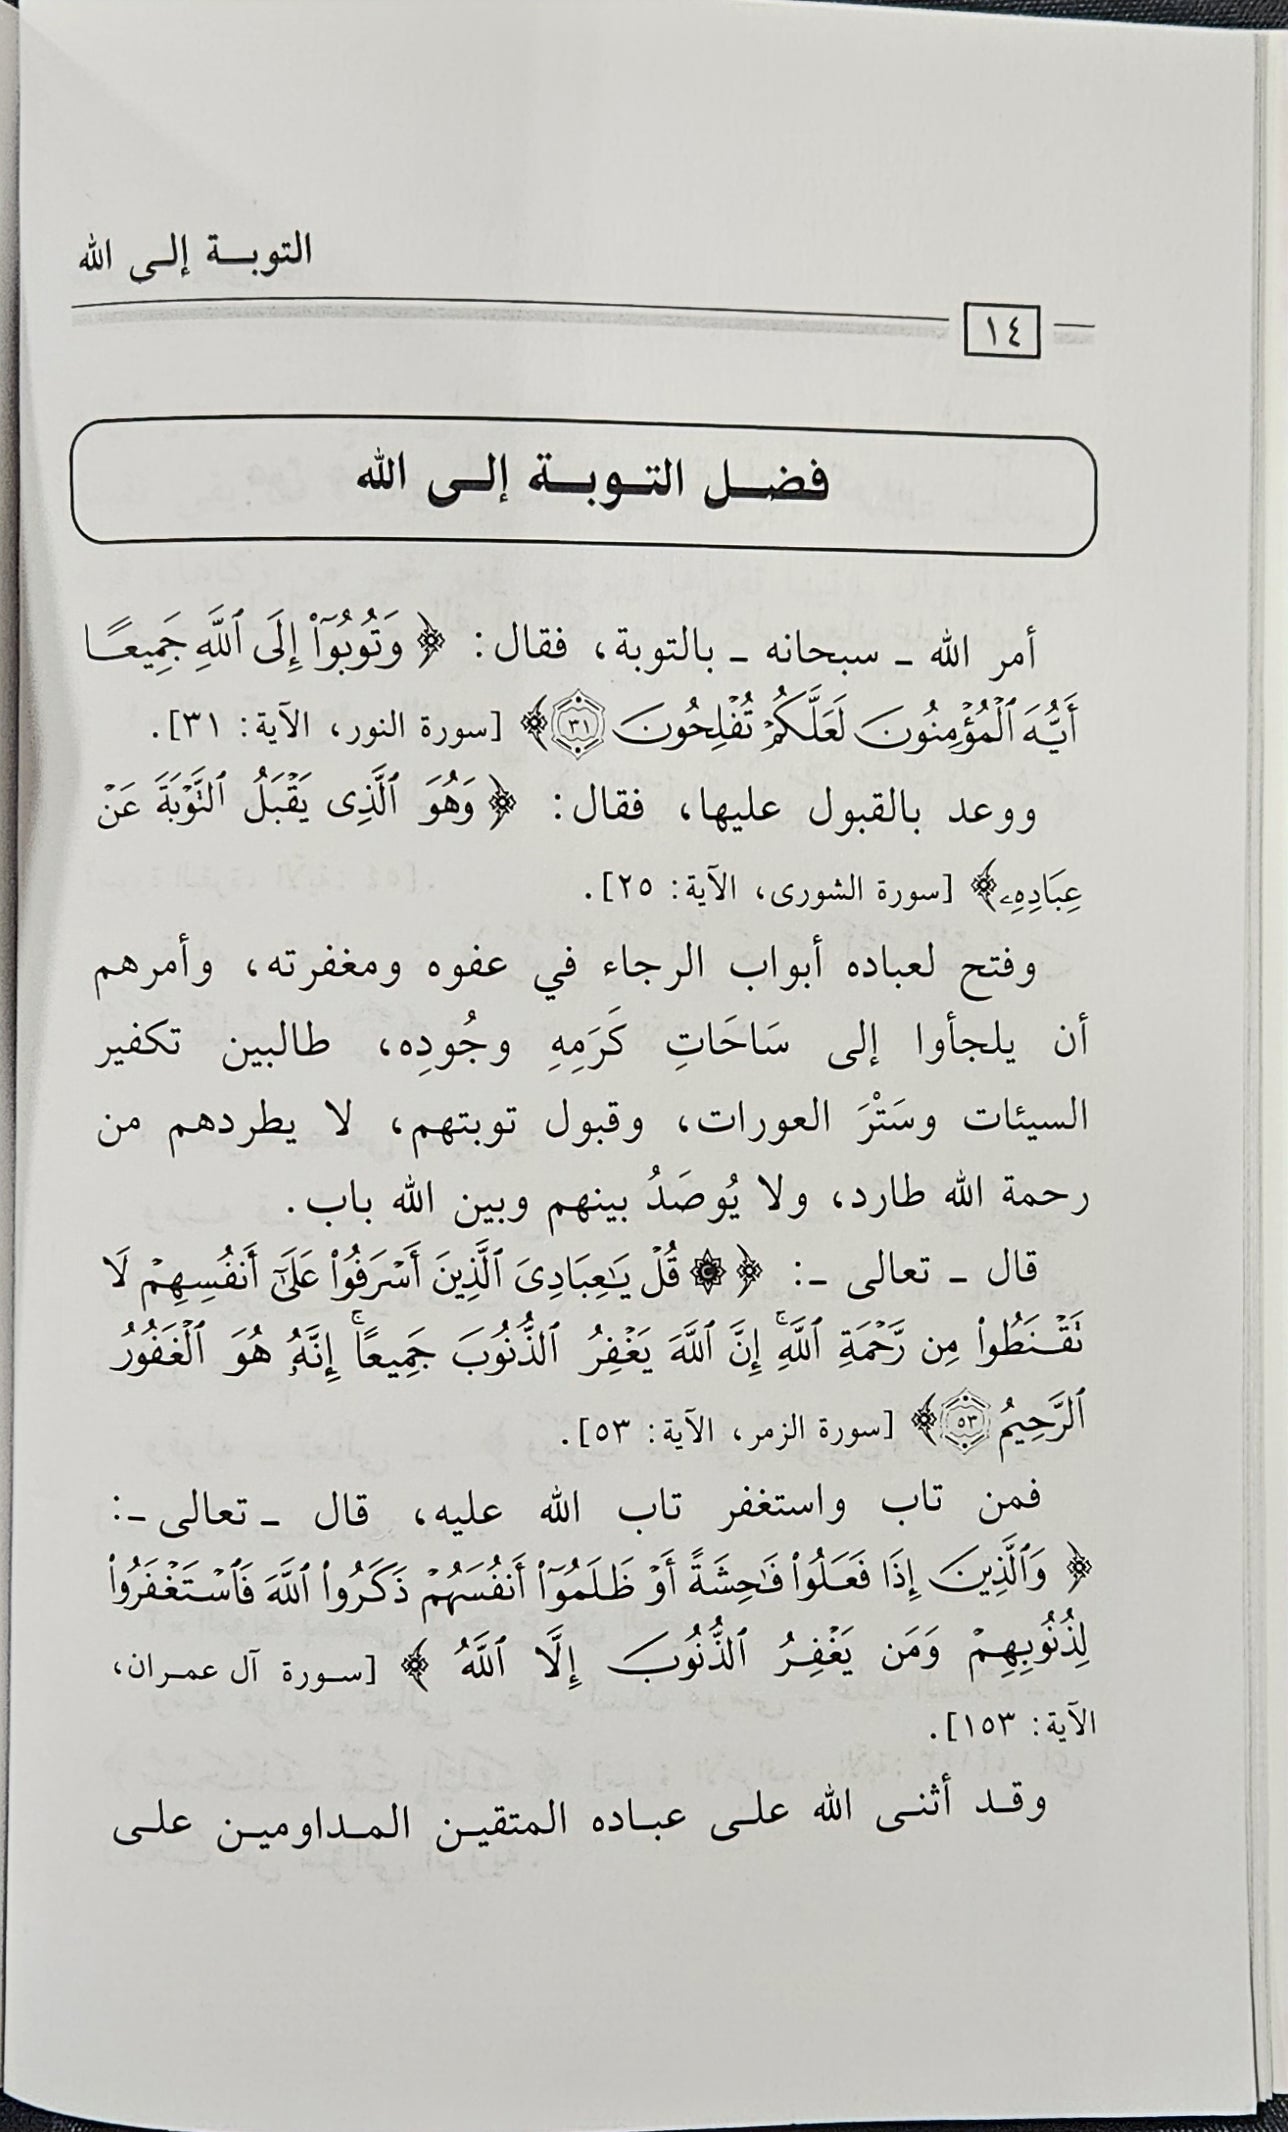 التوبة إلى الله
١٤
فضل التوبة إلى الله
أمر الله ـ سبحانه ـ بالتوبة، فقال: ﴿ وَتُوبُوٓا۟ إِلَى ٱللَّهِ جَمِيعًا
أَيُّهَ ٱلْمُؤْمِنُونَ لَعَلَّكُمْ تُفْلِحُونَ ٣١ ﴾ [سورة النور، الآية: ٣١].
ووعد بالقبول عليها، فقال: ﴿ وَهُوَ ٱلَّذِى يَقْبَلُ ٱلتَّوْبَةَ عَنْ
عِبَادِهِۦ ﴾ [سورة الشورى، الآية: ٢٥].
وفتح لعباده أبواب الرجاء في عفوه ومغفرته، وأمرهم
أن يلجأوا إلى سَاحَاتِ كَرَمِهِ وجُودِه، طالبين تكفير
السيئات وسَتْرَ العورات، وقبول توبتهم، لا يطردهم من
رحمة الله طارد، ولا يُوصَدُ بينهم وبين الله باب.
قال ـ تعالى ـ: ﴿ ۞ قُلْ يَـٰعِبَادِىَ ٱلَّذِينَ أَسْرَفُوا۟ عَلَىٰٓ أَنفُسِهِمْ لَا
تَقْنَطُوا۟ مِن رَّحْمَةِ ٱللَّهِ ۚ إِنَّ ٱللَّهَ يَغْفِرُ ٱلذُّنُوبَ جَمِيعًا ۚ إِنَّهُۥ هُوَ ٱلْغَفُورُ
ٱلرَّحِيمُ ٥٣ ﴾ [سورة الزمر، الآية: ٥٣].
فمن تاب واستغفر تاب الله عليه، قال ـ تعالى ـ:
﴿ وَٱلَّذِينَ إِذَا فَعَلُوا۟ فَـٰحِشَةً أَوْ ظَلَمُوٓا۟ أَنفُسَهُمْ ذَكَرُوا۟ ٱللَّهَ فَٱسْتَغْفَرُوا۟
لِذُنُوبِهِمْ وَمَن يَغْفِرُ ٱلذُّنُوبَ إِلَّا ٱللَّهُ ﴾ [سورة آل عمران،
الآية: ١٥٣].
وقد أثنى الله على عباده المتقين المداومين على